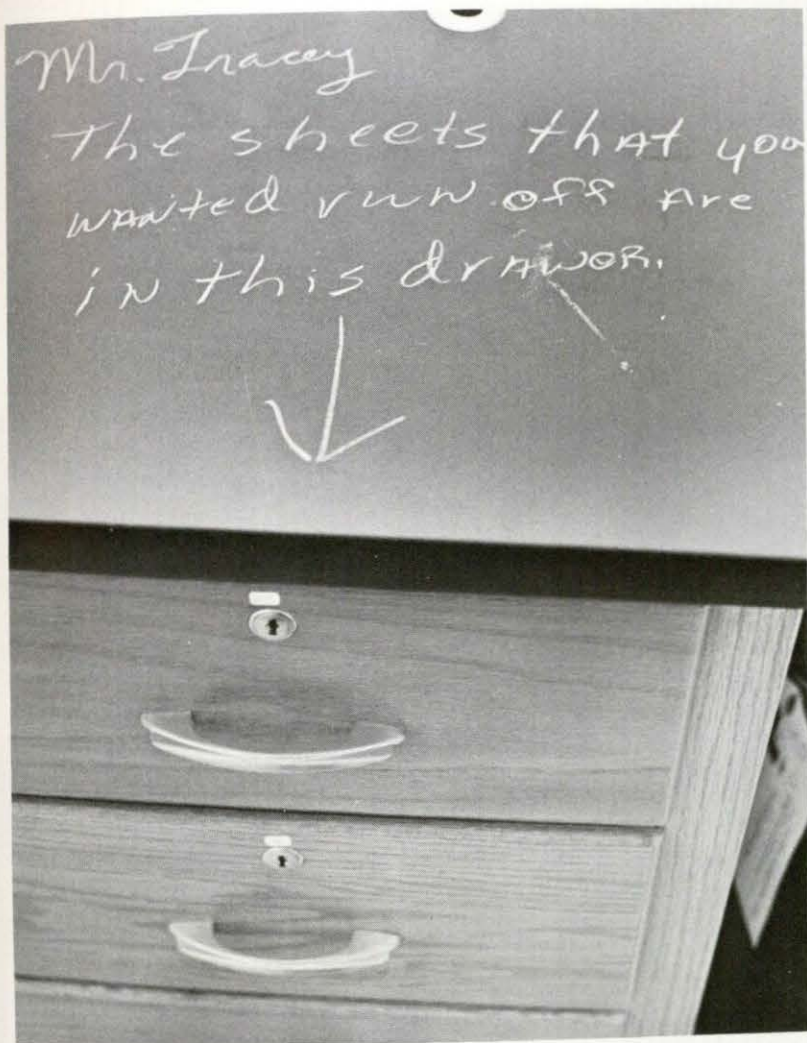 Mr. Tracey
The sheets that you
wanted run off are
in this drawor.